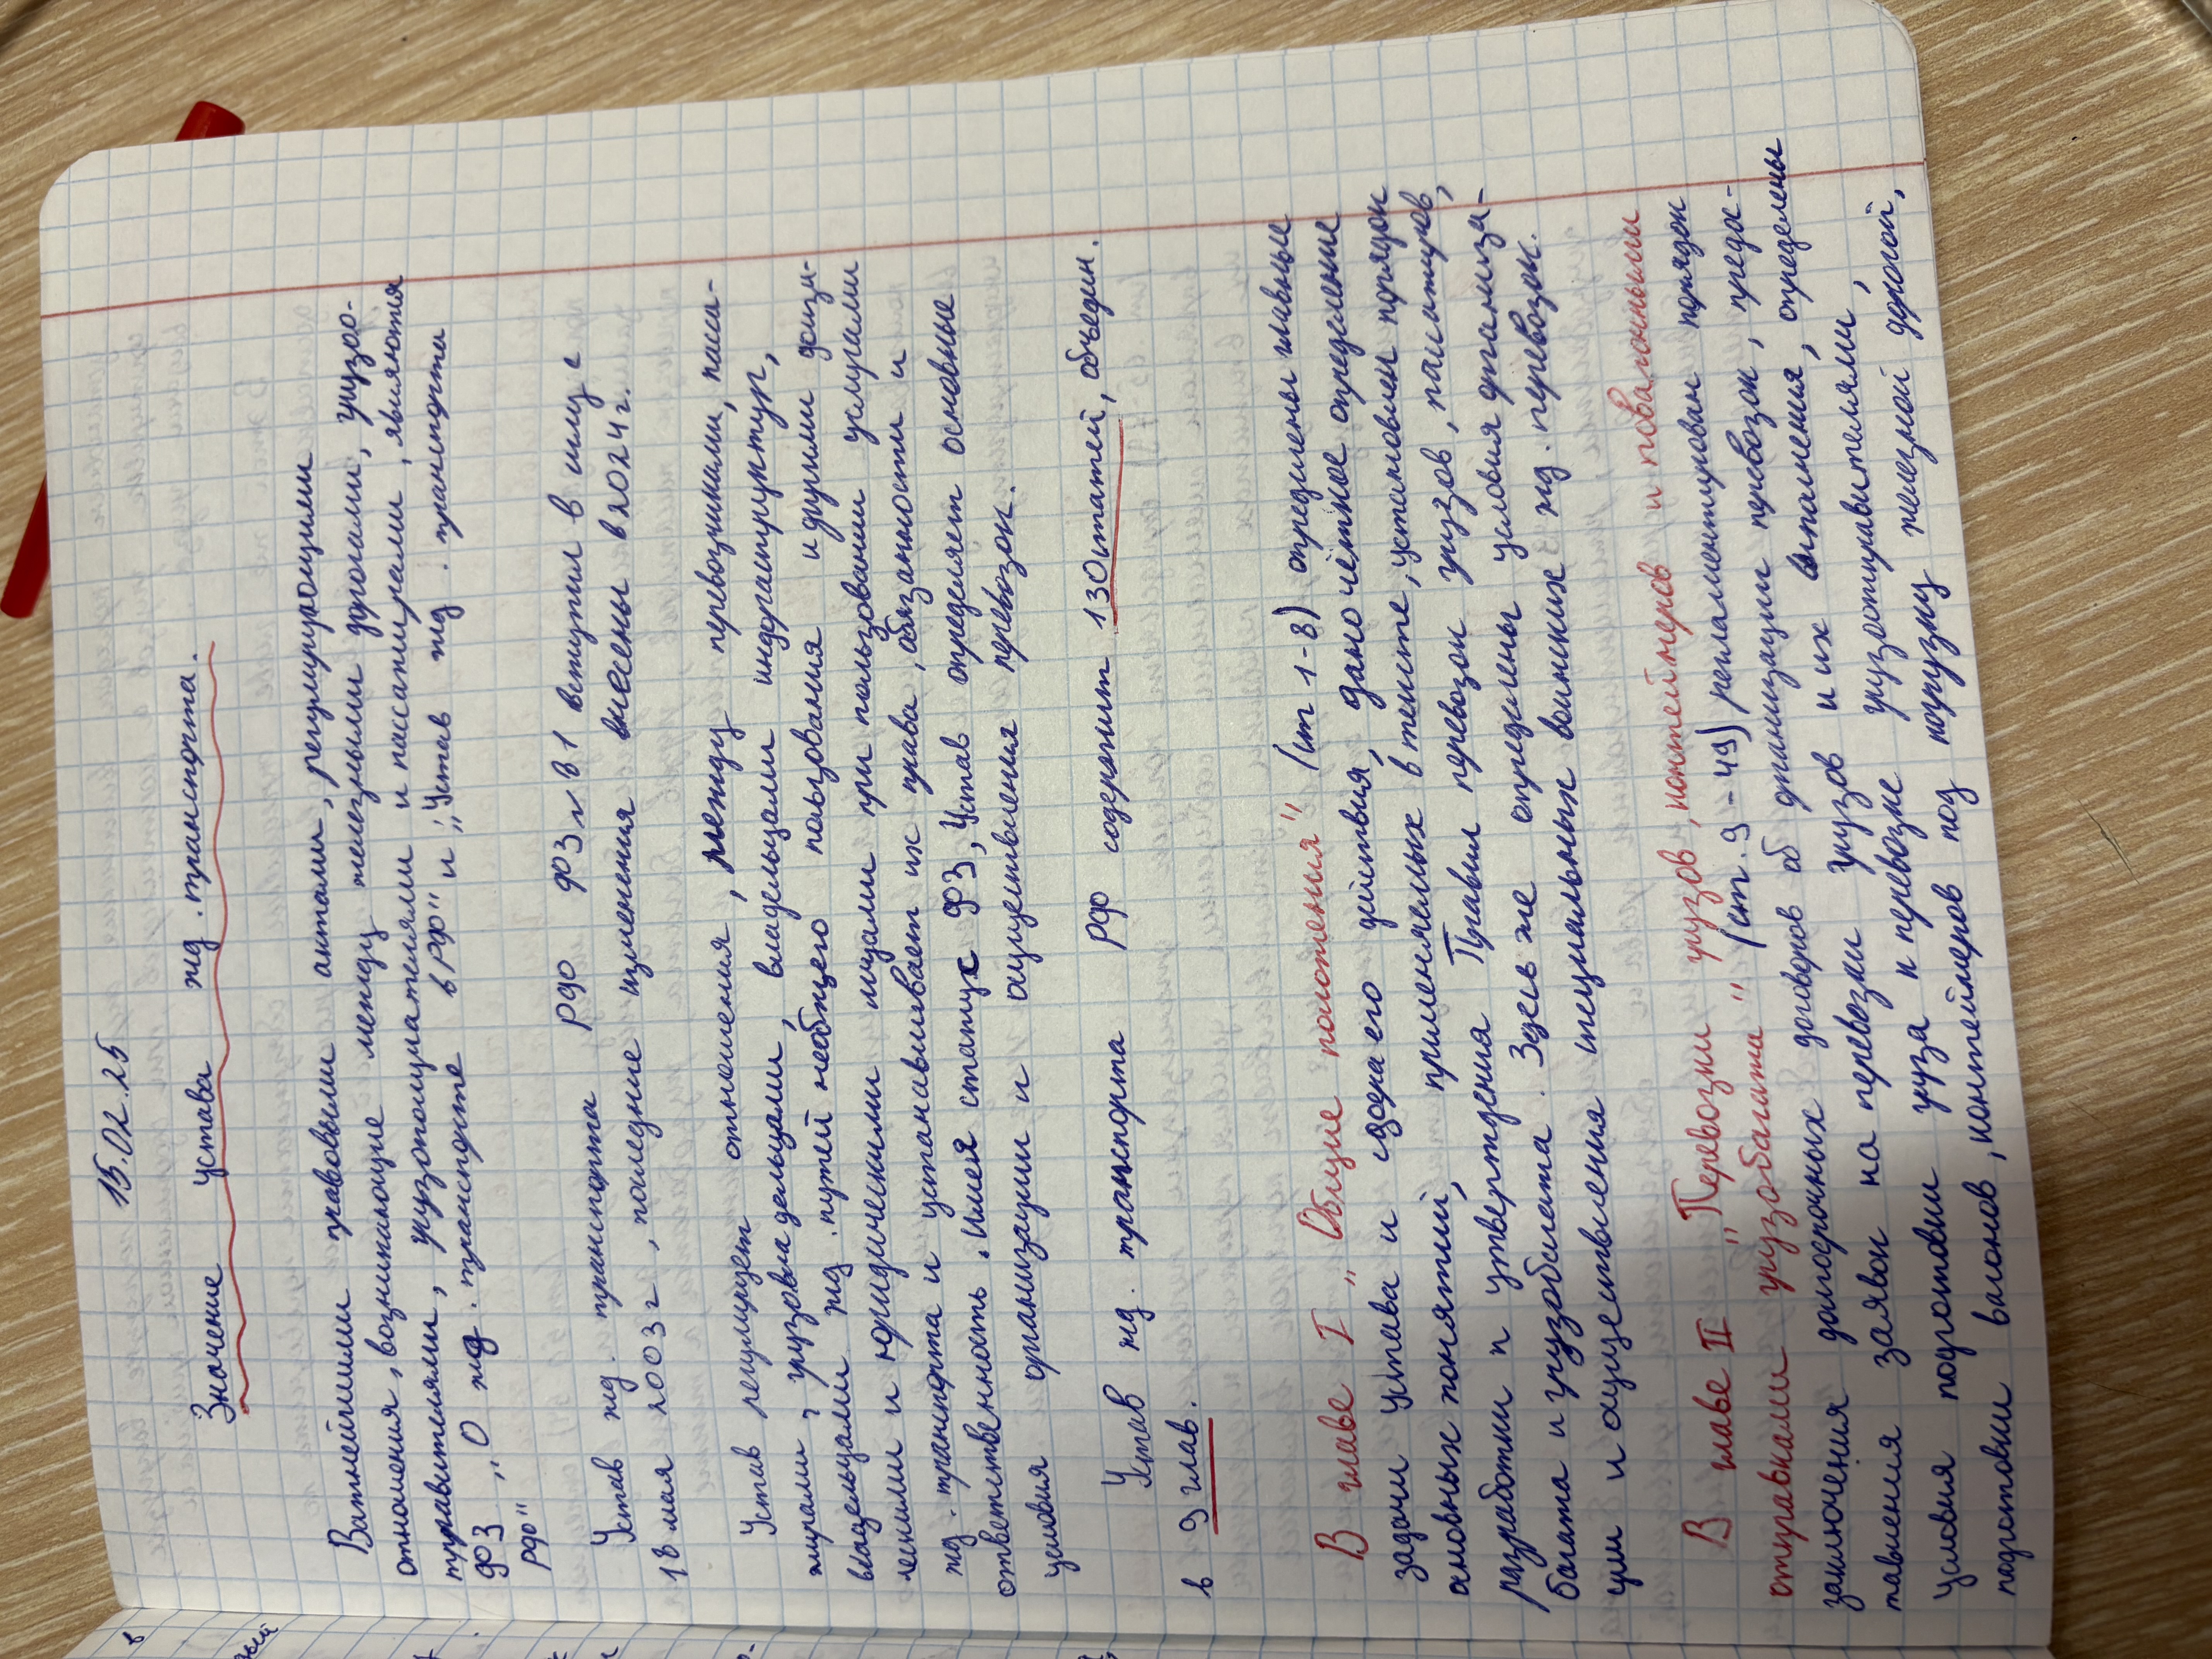 15.02.25
Значение устава жд. транспорта.
Важнейшими правовыми актами, регулирующими
отношения, возникающие между железными дорогами, грузо-
отправителями, грузополучателями и пассажирами, являются
ФЗ „О жд. транспорте в РФ" и „Устав жд. транспорта
РФ"
Устав жд. транспорта РФ ФЗ №81 вступил в силу с
18 мая 2003 г, последние изменения внесены в 2024 г.
Устав регулирует отношения, между перевозчиками, пасса-
жирами, грузовладельцами, владельцами инфраструктур,
владельцами жд. путей необщего пользования и другими физи-
ческими и юридическими лицами при пользовании услугами
жд. транспорта и устанавливает их права, обязанности и
ответственность. Имея статус ФЗ, Устав определяет основные
условия организации и осуществления перевозок.
Устав жд. транспорта РФ содержит 130 статей, объедин.
в 9 глав.
В главе I „Общие положения" (ст 1-8) определены главные
задачи устава и сфера его действия, дано чёткое определение
основных понятий, применяемых в тексте, установлен порядок
разработки и утверждения Правил перевозок грузов, пассажиров,
багажа и грузобагажа. Здесь же определены условия организа-
ции и осуществления специальных воинских жд. перевозок.
В главе II „Перевозки грузов, контейнеров и повагонными
отправками грузобагажа" (ст. 9-49) регламентирован порядок
заключения долгосрочных договоров об организации перевозок, предос-
тавления заявок на перевозки грузов и их выполнения, определены
условия подготовки груза к перевозке грузоотправителями,
подготовки вагонов, контейнеров под погрузку железной дорогой,